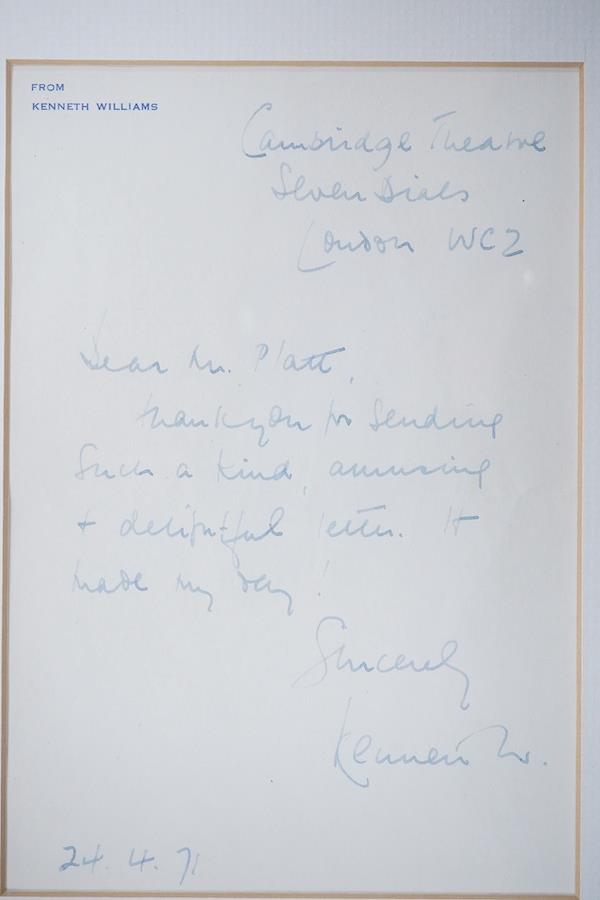 FROM
KENNETH WILLIAMS
Cambridge Theatre
Seven Dials
London WC2
Dear Mr. Platt,
thankyou for sending
such a kind, amusing
+ delightful letter. It
made my day!
Sincerely
Kenneth W.
24. 4. 71